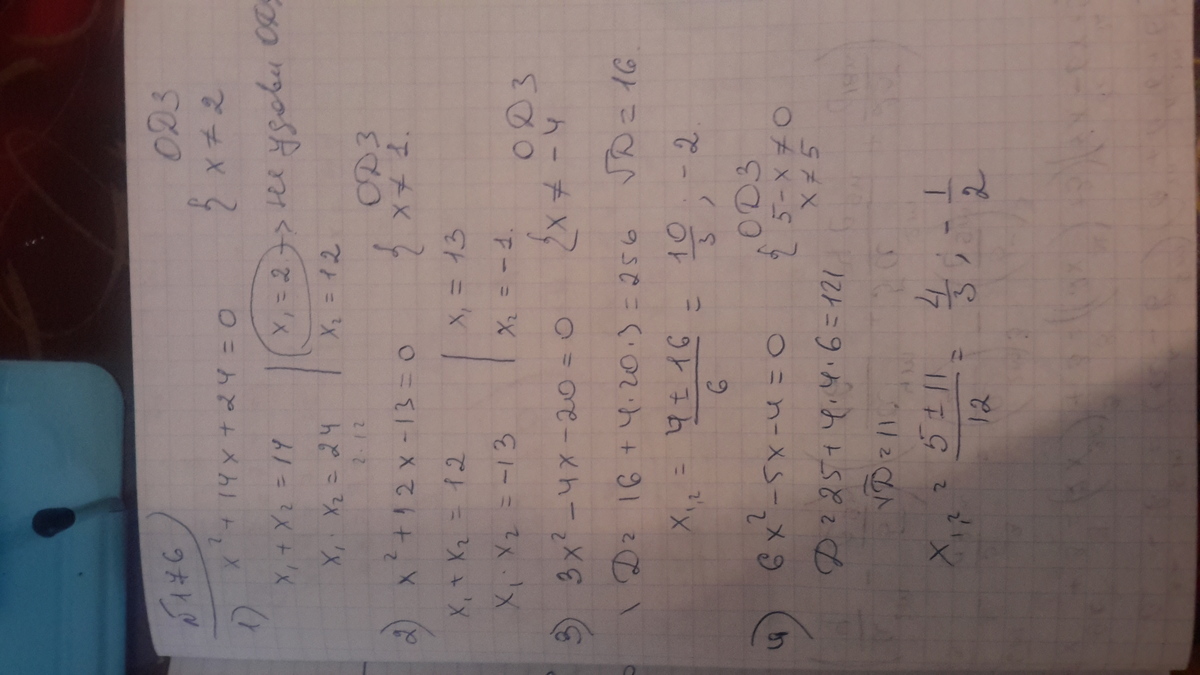 №176
1) x² + 14x + 24 = 0 ОДЗ { x ≠ 2
x₁ + x₂ = 14 | x₁ = 2 → не удовл ОДЗ
x₁ · x₂ = 24 | x₂ = 12
2·12
2) x² + 12x - 13 = 0 ОДЗ { x ≠ 1.
x₁ + x₂ = 12 | x₁ = 13
x₁ · x₂ = -13 | x₂ = -1.
3) 3x² - 4x - 20 = 0 ОДЗ { x ≠ -4
D = 16 + 4·20·3 = 256 √D = 16
x₁,₂ = (4 ± 16)/6 = 10/3, -2.
4) 6x² - 5x - 4 = 0 ОДЗ { 5 - x ≠ 0
x ≠ 5
D = 25 + 4·4·6 = 121
√D = 11.
x₁,₂ = (5 ± 11)/12 = 4/3, -1/2